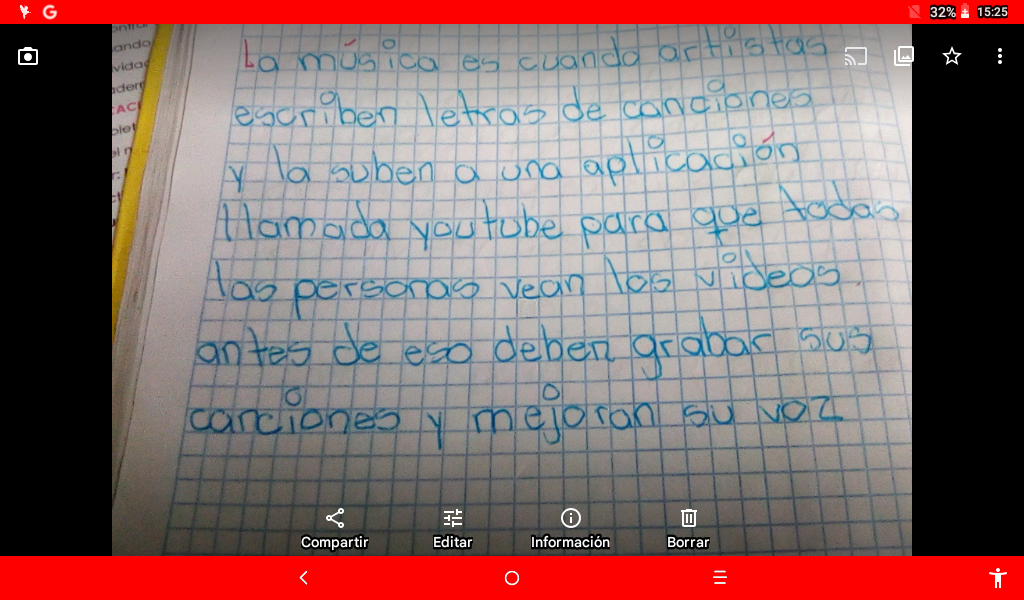 32% 15:25
La música es cuando artistas
escriben letras de canciones
y la suben a una aplicación
llamada youtube para que todas
las personas vean los videos
antes de eso deben grabar sus
canciones y mejoran su voz
Compartir Editar Información Borrar